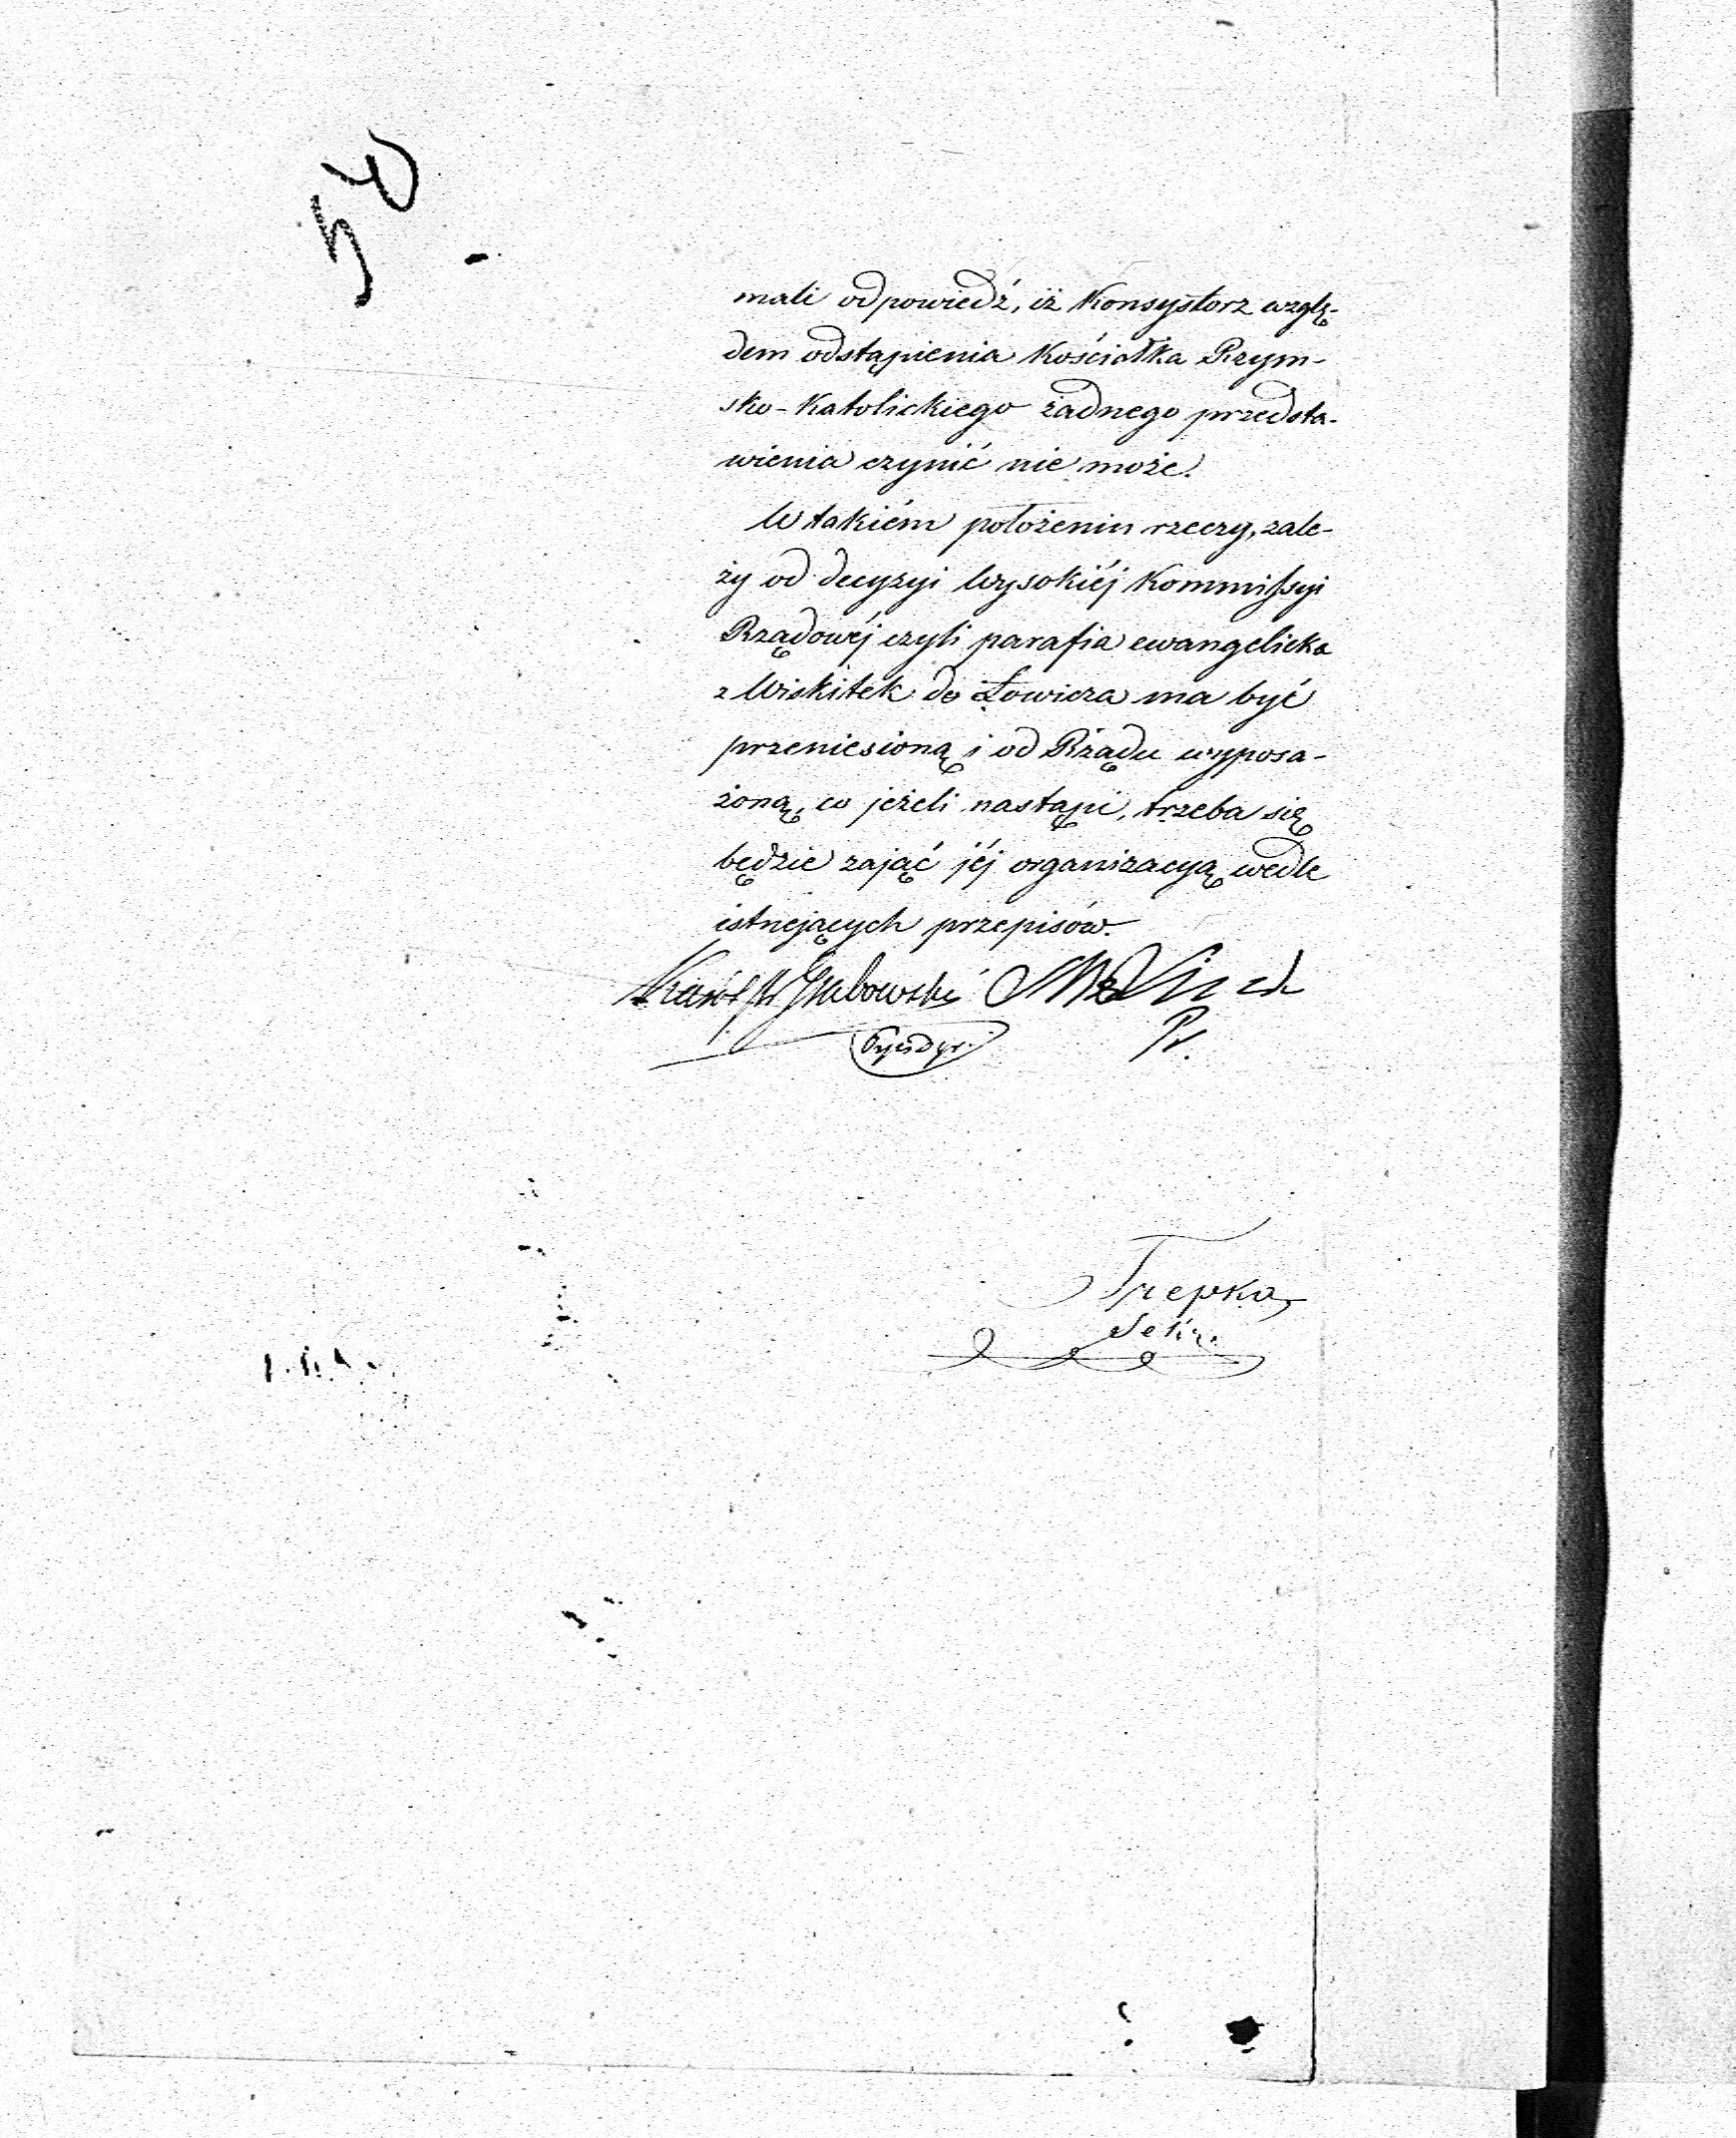 mali odpowiedź, iż Konsystorz wzglę-
dem odstąpienia Kościołka Rzym-
sko-Katolickiego żadnego przedsta-
wienia czynić nie może.
W takiém położeniu rzeczy, zale-
ży od decyzyi Wysokiéj Kommissyi
Rządowéj czyli parafia ewangelicka
z Wiskitek do Łowicza ma być
przeniesioną i od Rządu wyposa-
żoną, co jeżeli nastąpi, trzeba się
będzie zająć jéj organizacyą wedle
istnejących przepisów.
Grabowski
Pr.
Trepka
Sekr.